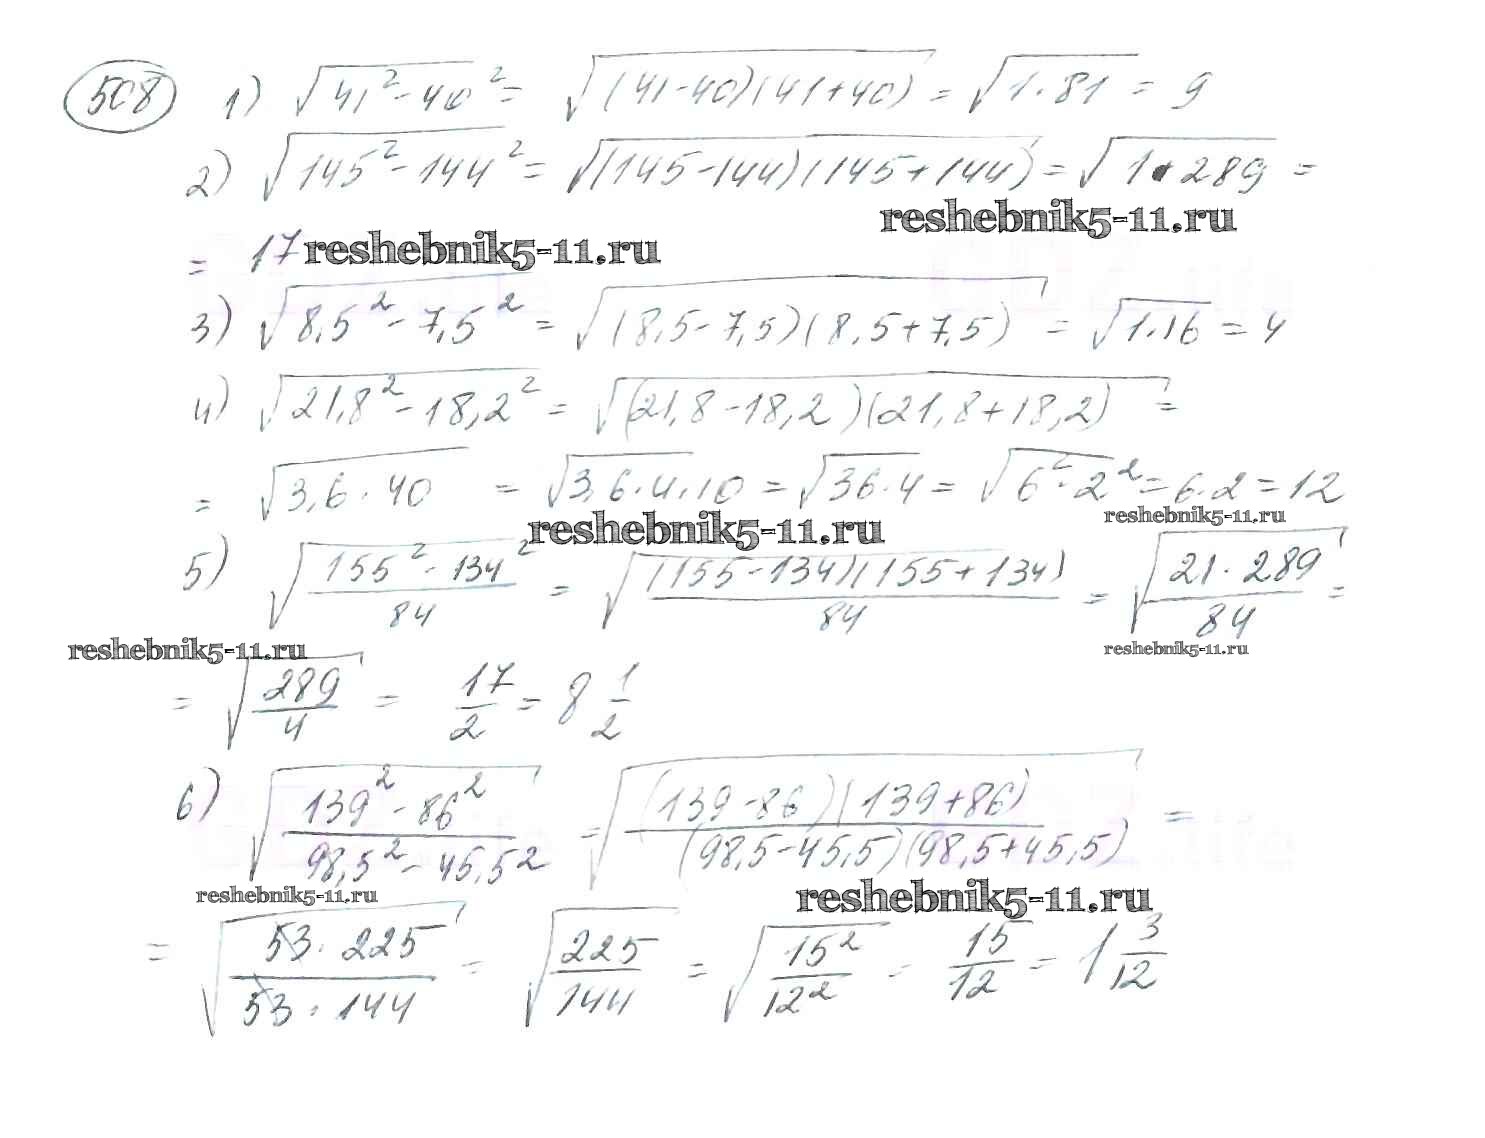 508 1) √(41² - 40²) = √((41-40)(41+40)) = √(1·81) = 9
2) √(145² - 144²) = √((145-144)(145+144)) = √(1·289) =
reshebnik5-11.ru
= 17 reshebnik5-11.ru
3) √(8,5² - 7,5²) = √((8,5-7,5)(8,5+7,5)) = √(1·16) = 4
4) √(21,8² - 18,2²) = √((21,8-18,2)(21,8+18,2)) =
= √(3,6·40) = √(3,6·4·10) = √(36·4) = √(6²·2²) = 6·2 = 12
reshebnik5-11.ru
reshebnik5-11.ru
5) √((155² - 134²)/84) = √((155-134)(155+134)/84) = √(21·289/84) =
reshebnik5-11.ru
reshebnik5-11.ru
= √(289/4) = 17/2 = 8 1/2
6) √((139² - 86²)/(98,5² - 45,5²)) = √((139-86)(139+86)/(98,5-45,5)(98,5+45,5)) =
reshebnik5-11.ru
reshebnik5-11.ru
= √(53·225/53·144) = √(225/144) = √(15²/12²) = 15/12 = 1 3/12